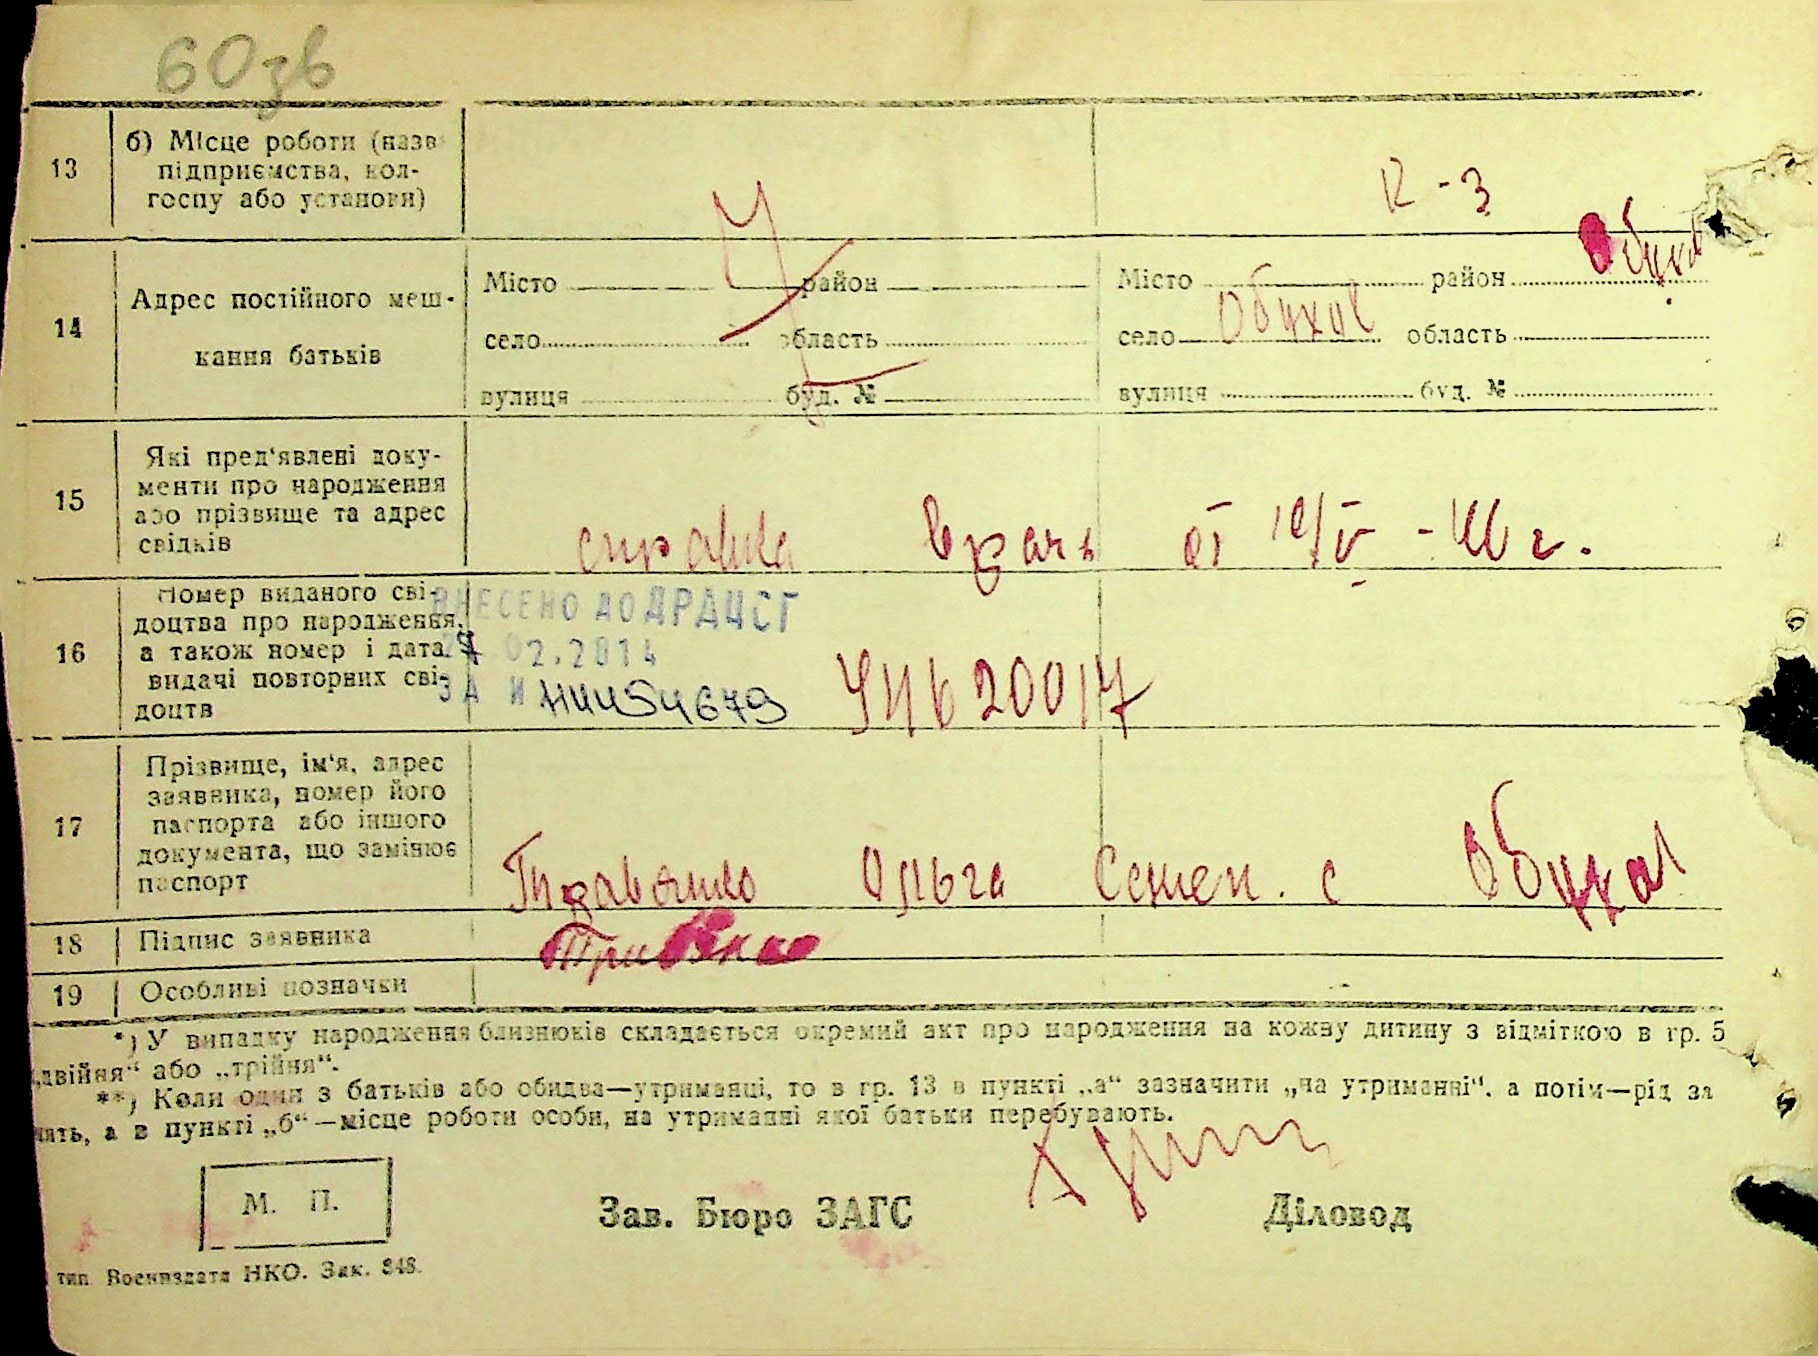 60зв
13 б) Місце роботи (назв
підприємства, кол-
госпу або установи)
к-з
14 Адрес постійного меш-
кання батьків
Місто район
село область
вулиця буд. №
Місто район Обухов
село Обухов область
вулиця буд. №
15 Які пред‘явлені доку-
менти про народження
або прізвище та адрес
свідків
справка врача от
16 Номер виданого сві-
доцтва про народження,
а також номер і дата
видачі повторних сві-
доцтв
ВНЕСЕНО ДО ДРАЦСГ
02.2014
ЗА И 44454679
20017
17 Прізвище, ім‘я, адрес
заявника, номер його
паспорта або іншого
документа, що замінює
паспорт
Ольга Семен. с Обухов
18 Підпис заявника
19 Особливі позначки
*) У випадку народження близнюків складається окремий акт про народження на кожну дитину з відміткою в гр. 5
„двійня“ або „трійня“.
**) Коли один з батьків або обидва—утриманці, то в гр. 13 в пункті „а“ зазначити „на утриманні“, а потім—рід за
нять, а в пункті „б“—місце роботи особи, на утриманні якої батьки перебувають.
М. П.
Зав. Бюро ЗАГС Діловод
тип. Воениздата НКО. Зак. 848.